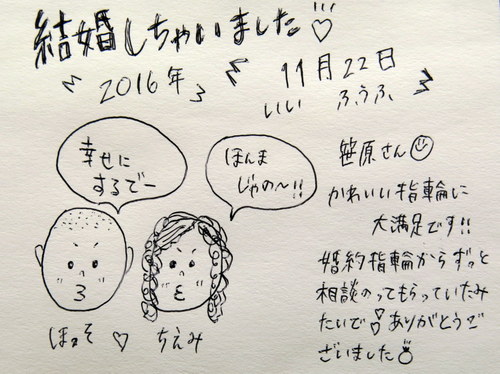 結婚しちゃいました♡
2016年 11月22日
いい ふうふ
幸せに
するでー
ほんま
じゃの〜!!
ほそ ♡ ちえみ
笹原さん
かわいい指輪に
大満足です!!
婚約指輪からずっと
相談のってもらっていたみ
たいで! ありがとうご
ざいました